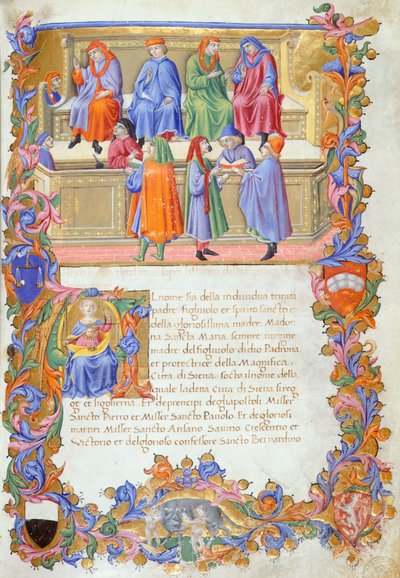 Al nome sia della individua trinita
padre figliuolo et spirito sancto et
della gloriosissima madre Madon
na Sancta Maria sempre vergine
madre del figliuolo didio Padrona
et protectrice della Magnifica
Citta di Siena, socto ilnome della
quale ladetta Citta di Siena si reg
ge et si ghoverna Et deprencipi degliapostoli Misser
Sancto Pietro et Misser Sancto Pavolo. Et degloriosi
martiri Misser Sancto Ansano Savino Crescentio et
Victorio et delglorioso confessore Sancto Bernardino